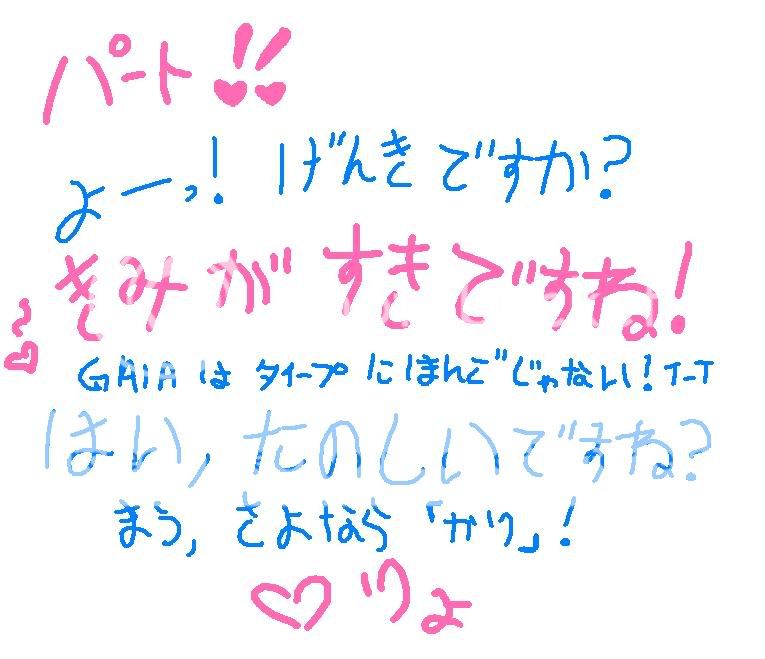 パート!!
よーっ! げんきですか?
きみが すきですね!
GAIA は タイープ にほんごじゃない! T-T
はい, たのしいですね?
まう, さよなら「かり」!
りょ